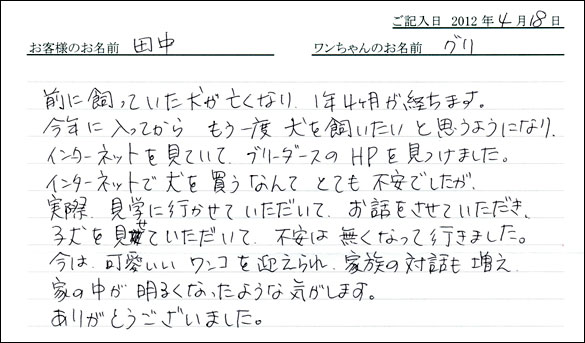 ご記入日 2012 年 4 月 18 日
お客様のお名前 田中 ワンちゃんのお名前 グリ
前に飼っていた犬が亡くなり、1年4ヶ月が経ちます。
今年に入ってから もう一度 犬を飼いたい と思うようになり、
インターネットを見ていて、ブリーダースの HPを見つけました。
インターネットで犬を買うなんて とても 不安でしたが、
実際、見学に行かせていただいて、お話をさせていただき、
子犬を見せていただいて、不安は 無くなって行きました。
今は、可愛いい ワンコを迎えられ、家族の対話も 増え
家の中が 明るくなったような 気がします。
ありがとうございました。